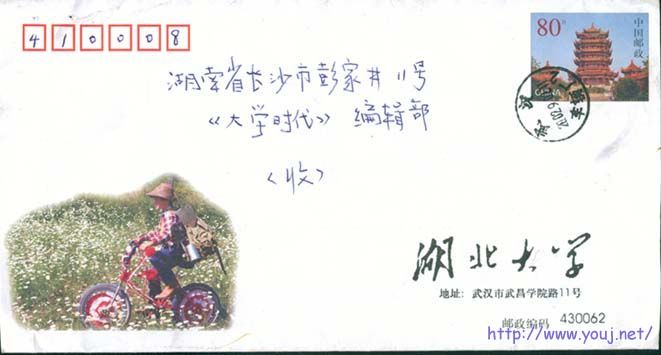 410008
80分
中国邮政
CHINA
湖南省长沙市彭家井11号
《大学时代》编辑部
<收>
湖北大学
地址：武汉市武昌学院路11号
邮政编码 430062
http://www.youj.net/